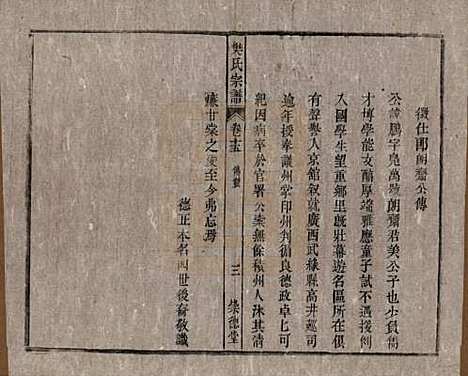 徵仕郎朗齋公傳
公諱鵬字鳧萬號朗齋君美公子也少負雋
才博學能文醇厚端雅應童子試不遇援例
入國學生望重鄉里旣壯幕遊名區所在
有聲譽入京館敘就廣西武緣縣高井廵司
逾年授奉議州掌印州判循良德政卓乜可
紀因病卒於官署公案無餘積州人沐其清
廉甘棠之愛至今弗忘焉
德正本名四世後裔敬識
樊氏宗譜
卷十五
傳贊
三
崇德堂